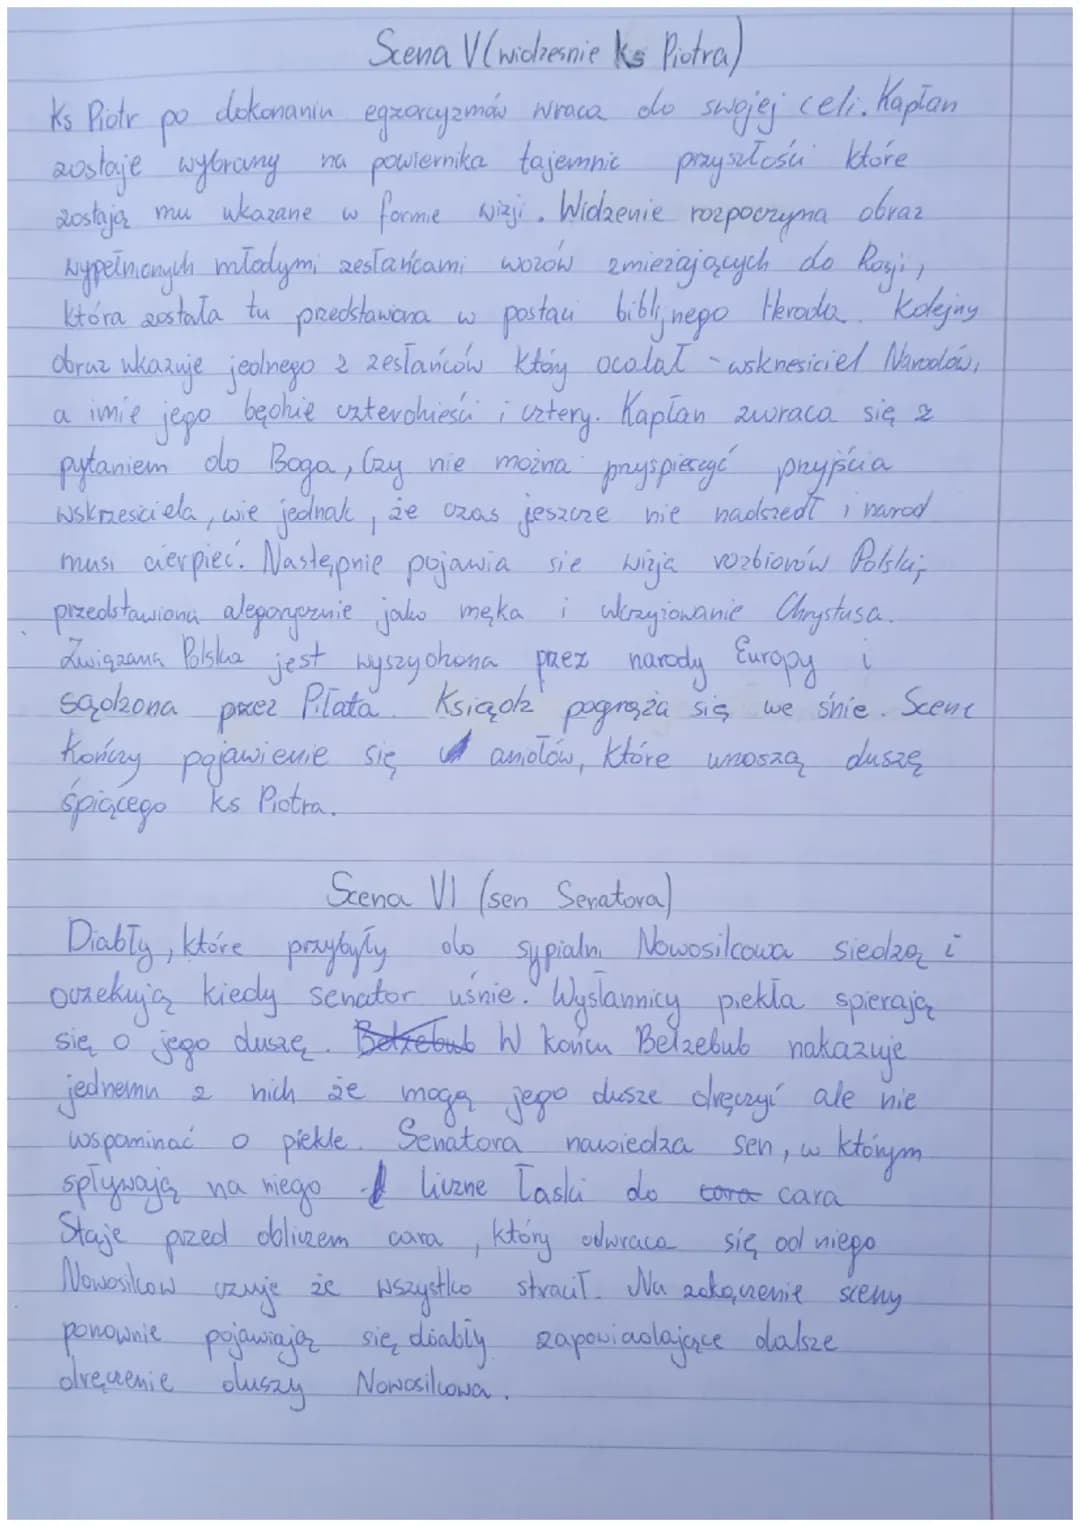 Scena V (widzesnie ks Piotra)
Ks Piotr po dokonaniu egzorcyzmów wraca do swojej celi. Kapłan
zostaje wybrany na powiernika tajemnic przyszłości które
zostają mu ukazane w formie wizji. Widzenie rozpoczyna obraz
wypełnionych młodymi zesłańcami wozów zmierzających do Rosji,
która została tu przedstawiona w postaci biblijnego Heroda. Kolejny
obraz ukazuje jednego z zesłańców który ocalał - wskrzesiciel Narodów,
a imie jego będzie czterdzieści i cztery. Kapłan zwraca się z
pytaniem do Boga, Czy nie można przyspieszyć przyjścia
wskrzesiciela, wie jednak, że czas jeszcze nie nadszedł i narod
musi cierpieć. Następnie pojawia sie wizja rozbiorów Polski,
przedstawiona alegorycznie jako męka i ukrzyżowanie Chrystusa.
Związana Polska jest wyszydzona przez narody Europy i
sądzona przez Piłata. Ksiądz pogrąża się we śnie. Scene
kończy pojawienie się aniołów, które unoszą duszę
śpiącego ks Piotra.
Scena VI (sen Senatora)
Diabły, które przybyły do sypialni Nowosilcowa siedzą i
oczekują kiedy senator uśnie. Wysłannicy piekła spierają
się o jego duszę. Belzebub W końcu Belzebub nakazuje
jednemu z nich że mogą jego dusze dręczyć ale nie
wspominać o piekle. Senatora nawiedza sen, w którym
spływają na niego liczne łaski do cara cara
Staje przed obliczem cara, który odwraca się od niego
Nowosilcow czuje że wszystko stracił. Na zakączenie sceny
ponownie pojawiają się diabły zapowiadające dalsze
dręczenie duszy Nowosilcowa.